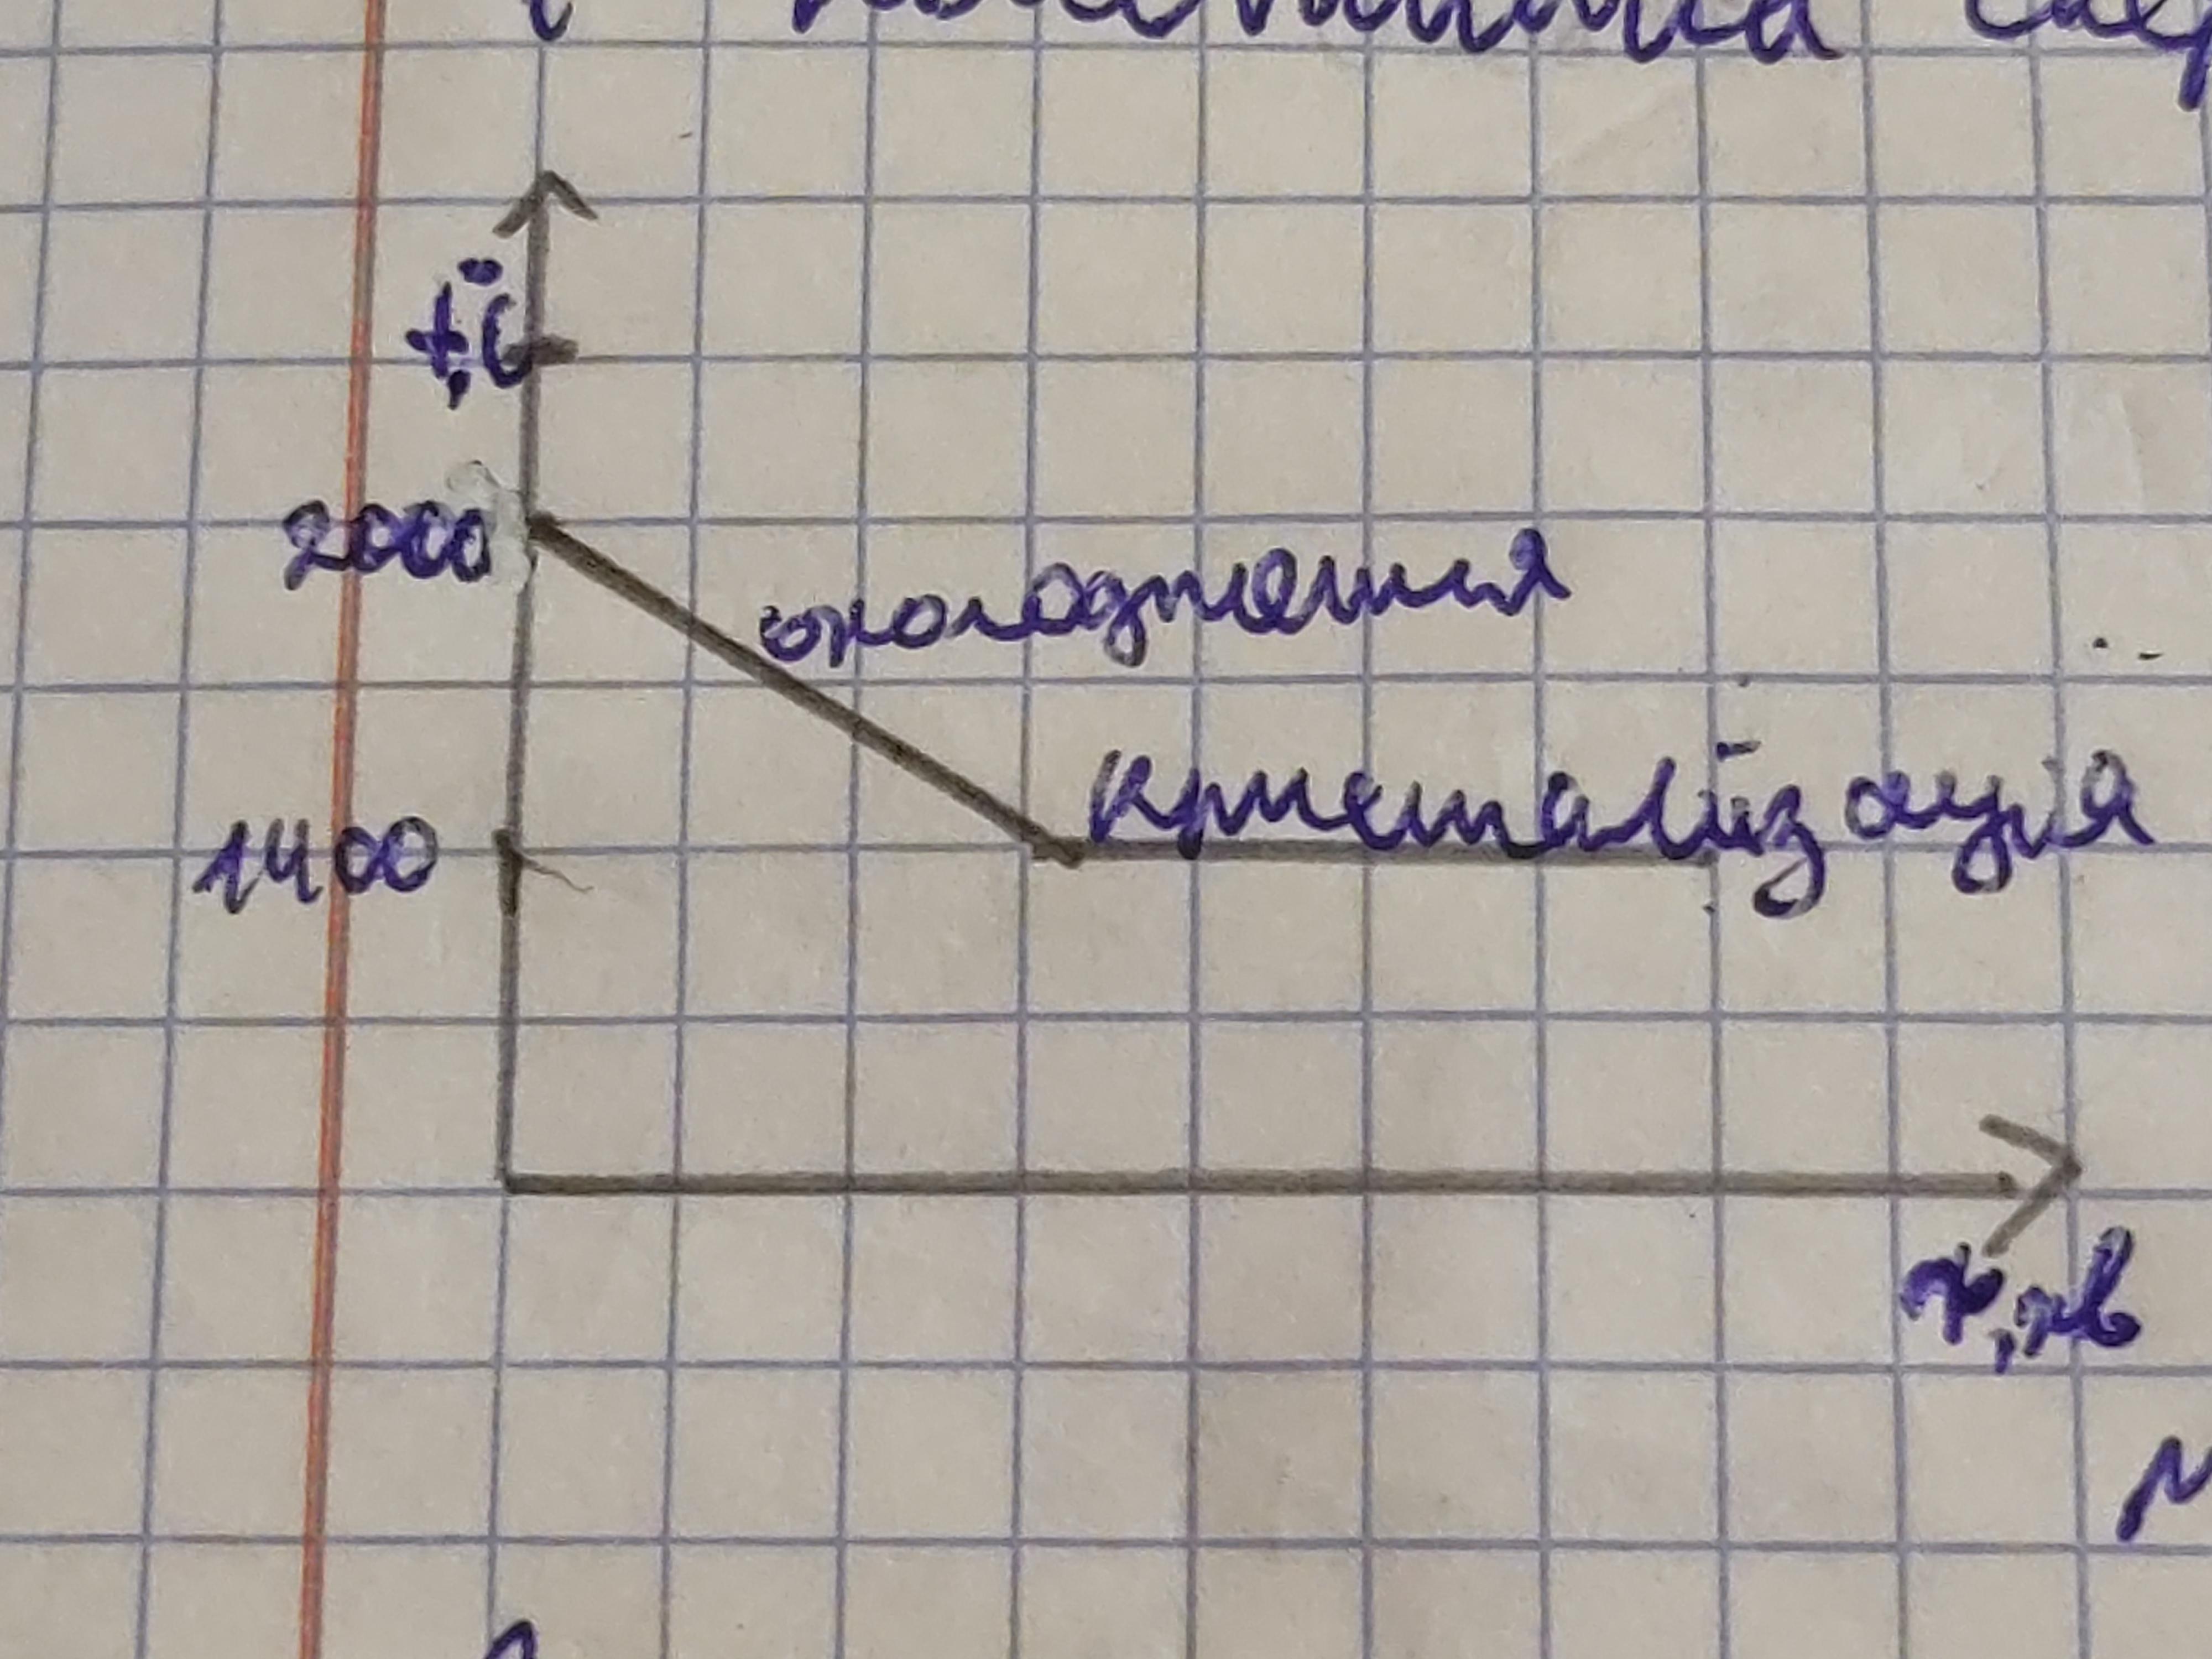 t,°C
2000
охолодження
кристалізація
1400
τ, хв